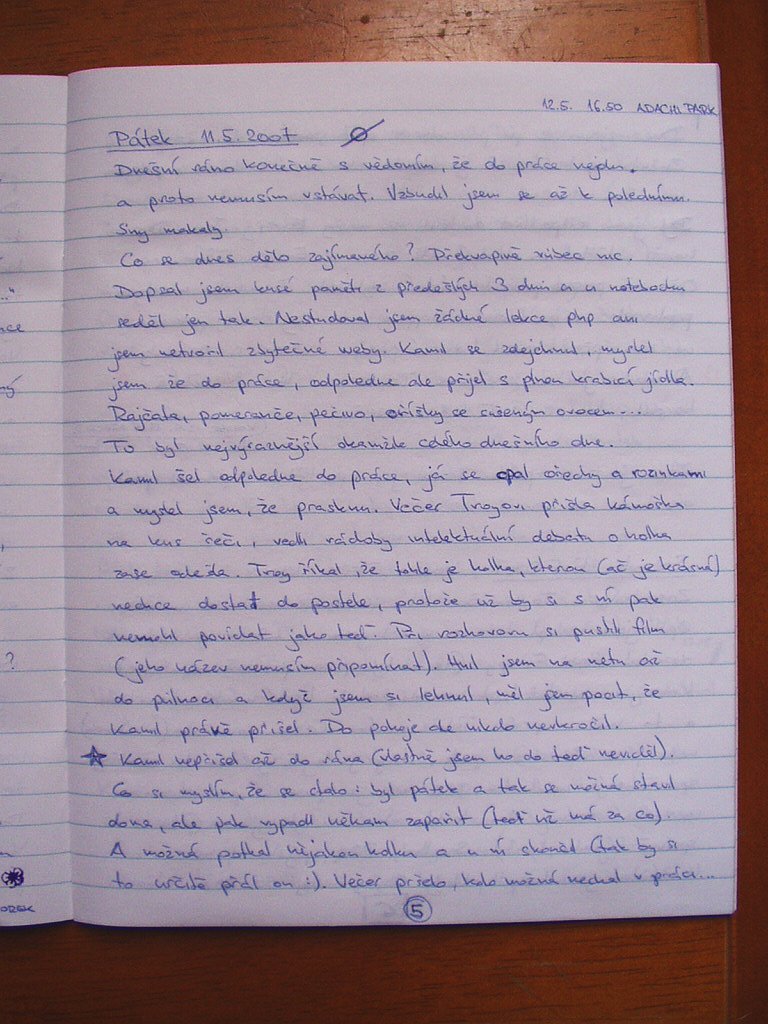 12.5. 16.50 ADACHI PARK
Pátek 11.5.2007
Dnešní ráno konečně s vědomím, že do práce nejdu.
a proto nemusím vstávat. Vzbudil jsem se až k polednímu.
Sny makaly.
Co se dnes dělo zajímavého? Překvapivě vůbec nic.
Dopsal jsem kusé paměti z předešlých 3 dnů a u notebooku
seděl jen tak. Nestudoval jsem žádné lekce php ani
jsem netvořil zbytečné weby. Kamil se zdejchnul, myslel
jsem že do práce, odpoledne ale přijel s plnou krabicí jídla.
Rajčata, pomeranče, pečivo, oříšky se sušeným ovocem...
To byl nejvýraznější okamžik celého dnešního dne.
Kamil šel odpoledne do práce, já se cpal ořechy a rozinkami
a myslel jsem, že prasknu. Večer Troyovi přišla kámoška
na kus řeči, vedli rádoby intelektuální debatu a holka
zase odešla. Troy říkal, že tohle je holka, kterou (ač je krásná)
nechce dostat do postele, protože už by si s ní pak
nemohl povídat jako teď. Při rozhovoru si pustili film
(jeho název nemusím připomínat). Hnil jsem na netu až
do půlnoci a když jsem si lehnul, měl jsem pocit, že
Kamil právě přišel. Do pokoje ale nikdo nevkročil.
Kamil nepřišel až do rána (vlastně jsem ho do teď neviděl).
Co si myslím, že se stalo: byl pátek a tak se možná stavil
doma, ale pak vypadl někam zapařit (teď už má za co).
A možná potkal nějakou holku a u ní skončil (tak by si
to určitě přál on :). Večer přišlo, kdo možná nechal v práci...
5